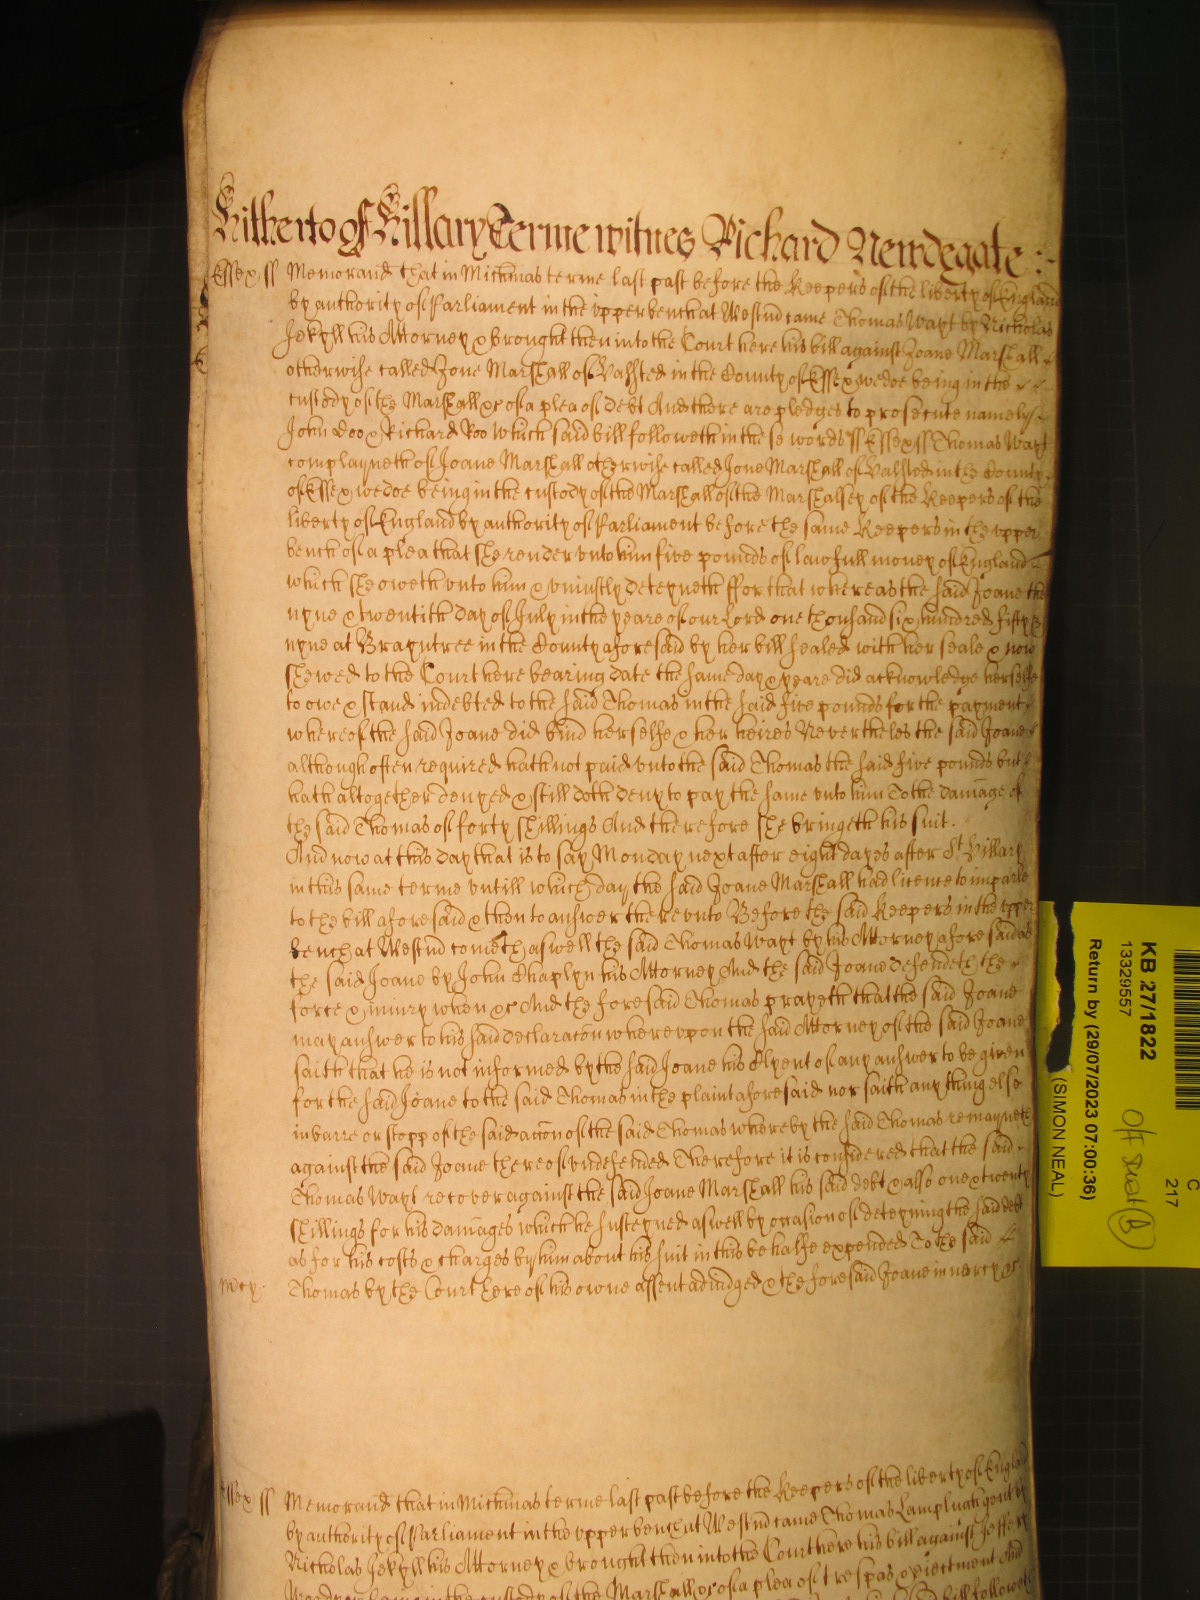 Hitherto of Hillary Terme witnes Richard Newdegate :
Essex ss Memorand that in Michmas terme last past before the Keepers of the liberty of England
by authority of Parliament in the upper bench at Westm̃ came Thomas Wayt by Nicholas
Jekyll his Attorney & brought then into the Court here his bill against Joane Marshall
otherwise called Jone Marshall of Halsted in the County of Essex widoe being in the
custody of the Marshall &c of a plea of debt And there are pledges to prosecute namely
John Doo & Richard Roo Which said bill followeth in these words ss Essex ss Thomas Wayt
complayneth of Joane Marshall otherwise called Jone Marshall of Halsted in the County
of Essex widoe being in the custody of the Marshall of the Marshalsey of the Keepers of the
liberty of England by authority of Parliament before the same Keepers in the upper
bench of a plea that she render unto him five pounds of lawfull money of England
which she oweth unto him & uniustly deteyneth ffor that whereas the said Joane the
nyne & twentith day of July in the yeare of our Lord one thousand six hundred fifty &
nyne at Brayntree in the County aforesaid by her bill sealed with her seale & now
shewed to the Court here bearing date the same day & yeare did acknowledge herselfe
to owe & stand indebted to the said Thomas in the said five pounds for the payment
whereof the said Joane did bind herselfe & her heires Nevertheles the said Joane
although often required hath not paid unto the said Thomas the said five pounds but
hath altogether denyed & still doth deny to pay the same unto him To the damage of
the said Thomas of forty shillings And therefore she bringeth his suit.
And now at this day that is to say Monday next after eight dayes after St Hillary
in this same terme untill which day the said Joane Marshall had licence to imparle
to the bill aforesaid & then to answer thereunto Before the said Keepers in the upper
bench at Westm̃ cometh aswell the said Thomas Wayt by his Attorney aforesaid as
the said Joane by John Chaplyn his Attorney And the said Joane defendeth the
force & iniury when &c And the foresaid Thomas prayeth that the said Joane
may answer to his said declaracõn whereupon the said Attorney of the said Joane
saith that he is not informed by the said Joane his Clyent of any answer to be given
for the said Joane to the said Thomas in the plaint aforesaid nor saith any thing else
in barre or stopp of the said acc̃on of the said Thomas whereby the said Thomas remayneth
against the said Joane thereof undefended Therefore it is considered that the said
Thomas Wayt recover against the said Joane Marshall his said debt & also one & twenty
shillings for his damages which he susteyned aswell by occasion of deteyning the said debt
as for his costs & charges by him about his suit in this behalfe expended To the said
Mcy. Thomas by the Court here of his owne assent adiudged & the foresaid Joane in mercy &c
Essex ss Memorand that in Michmas terme last past before the Keepers of the liberty of England
by authority of Parliament in the upper bench at Westm̃ came Thomas Lamplugh gent by
Nicholas Jekyll his Attorney & brought then into the Court here his bill against
in the custody of the Marshall &c of a plea of trespas & eiectment And
bill followeth
C
217
KB 27/1822
13329557
Return by (29/07/2023 07:00:36)
(SIMON NEAL)